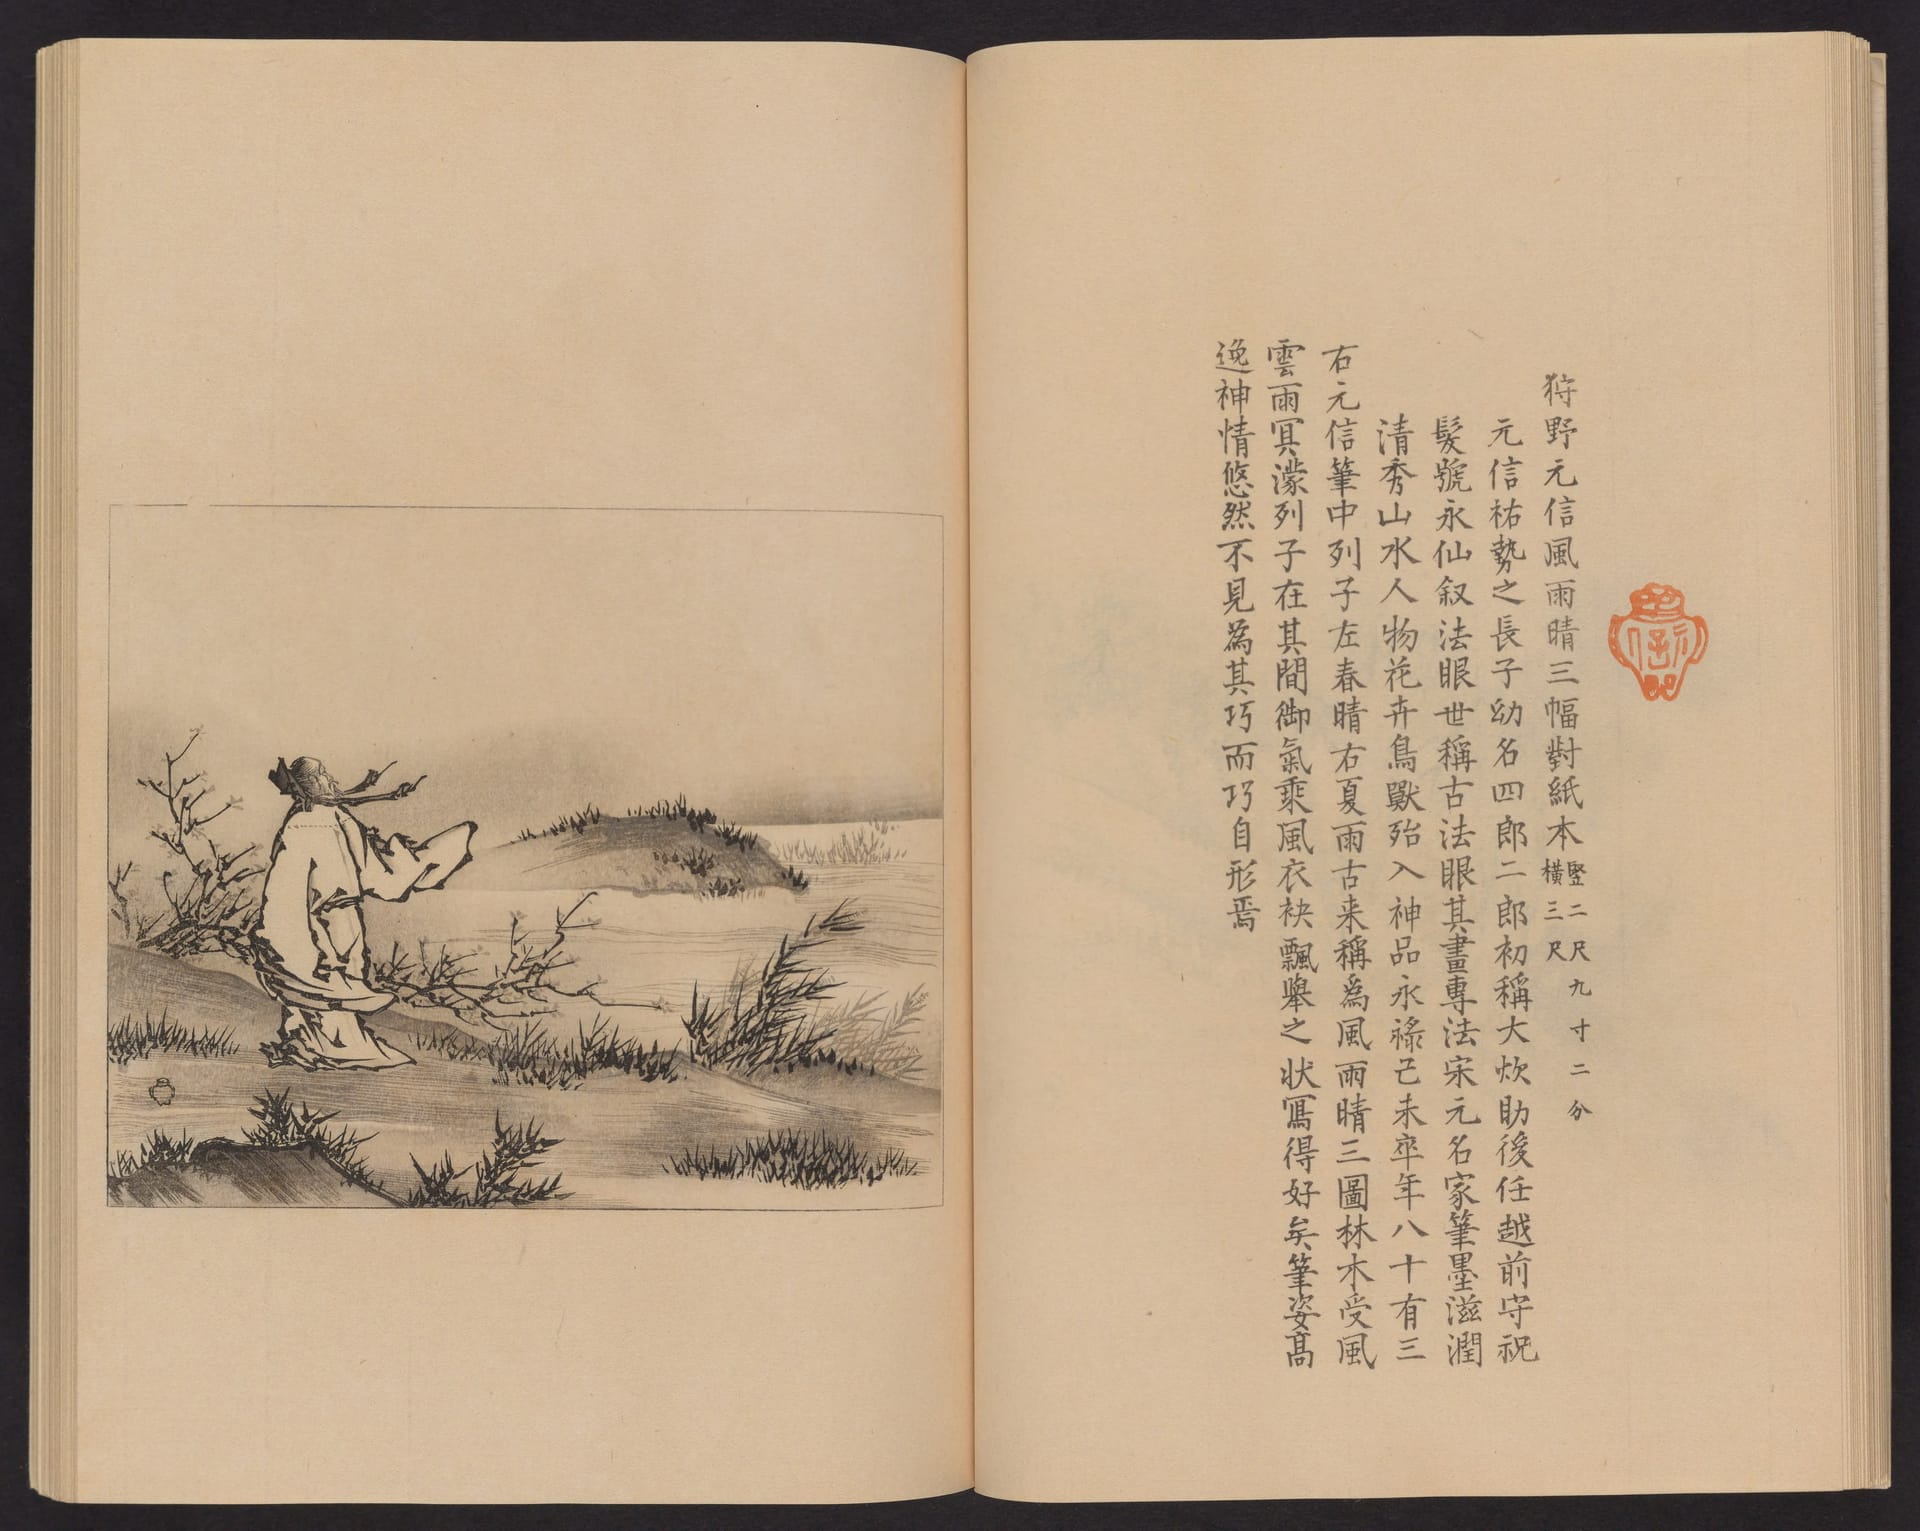 狩野元信風雨晴三幅對紙本竪二尺九寸二分
橫三尺
元信祐勢之長子幼名四郎二郎初稱大炊助後任越前守祝
髮號永仙叙法眼世稱古法眼其畫專法宋元名家筆墨滋潤
清秀山水人物花卉鳥獸殆入神品永祿己未卒年八十有三
右元信筆中列子左春晴右夏雨古来稱為風雨晴三圖林木受風
雲雨冥濛列子在其間御氣乘風衣袂飄舉之状寫得好矣筆姿高
逸神情悠然不見為其巧而巧自形焉